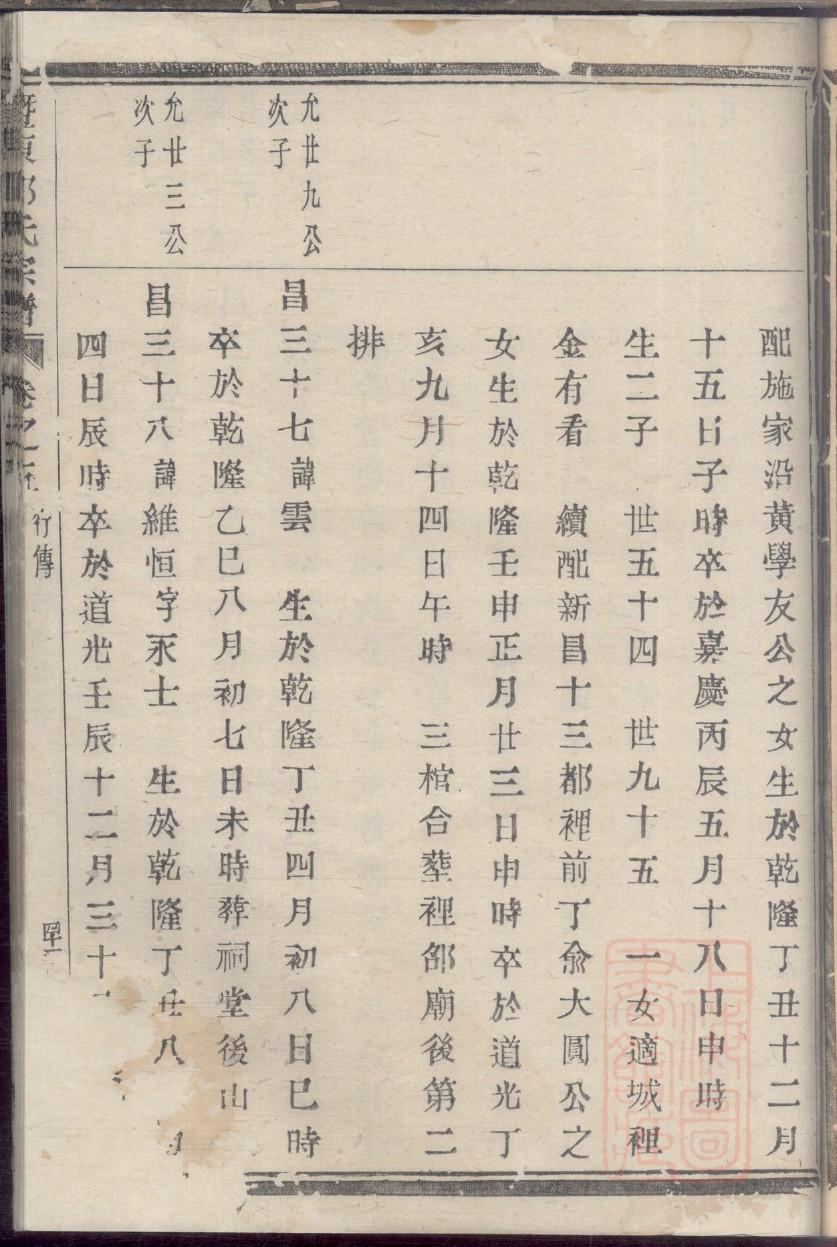 配施家沿黄學友公之女生於乾隆丁丑十二月
十五日子時卒於嘉慶丙辰五月十八日申時
生二子　世五十四　世九十五　一女適城裡
金有看　續配新昌十三都裡前丁兪大圓公之
女生於乾隆壬申正月廿三日申時卒於道光丁
亥九月十四日午時　三棺合塟裡郃廟後第二
排
允廿九公
次子
昌三十七諱雲　生於乾隆丁丑四月初八日巳時
卒於乾隆乙巳八月初七日未時葬祠堂後山
允廿三公
次子
昌三十八諱維恒字永士　生於乾隆丁丑八
四日辰時卒於道光壬辰十二月三十
氏宗譜　卷之五　行傳